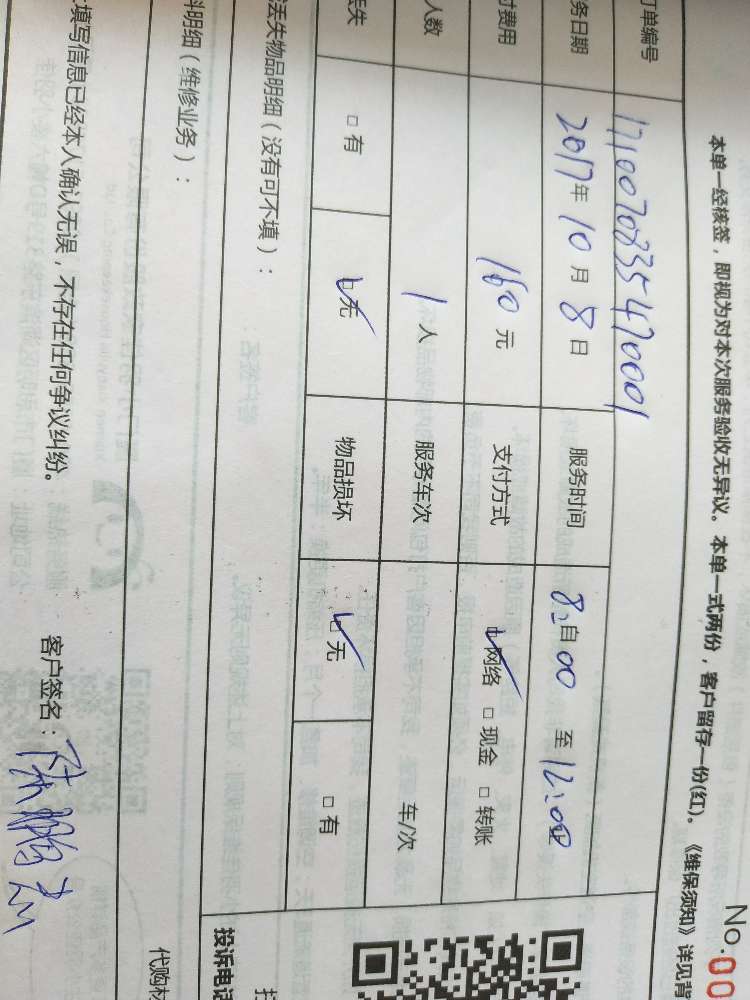 No.00
本单一经核签，即视为对本次服务验收无异议。本单一式两份，客户留存一份(红)。《维保须知》详见背
订单编号 1710070835470001
务日期 2017年 10月 8日 服务时间 自8:00 至12:00
付费用 160元 支付方式 □网络 □现金 □转账
人数 1人 服务车次 车/次
丢失 □有 □无 物品损坏 □无 □有
丢失物品明细（没有可不填）：
料明细（维修业务）：
填写信息已经本人确认无误，不存在任何争议纠纷。 客户签名：
投诉电话
代购材